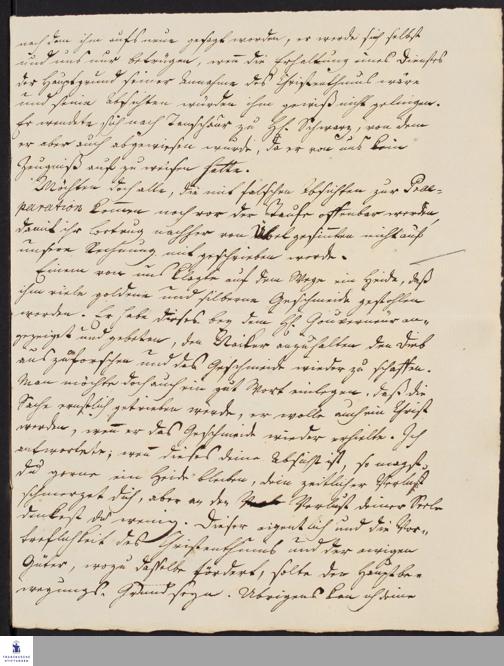 nach dem ihm aufs neue gesagt worden, er werde sich selbst
und uns nur betrügen, wenn die Erhaltung eines Dienstes
der Hauptgrund seiner Annahme des Christenthums wäre
und seine Absichten würden ihm gewiß nicht gelingen.
Er wendete sich nach Tanschaur zu H. Schwarz, von dem
er aber auch abgewiesen wurde, da er von uns kein
Zeugniß aufzuweisen hatte.
Möchten doch alle, die mit falschen Absichten zur Prae-
paration kommen noch vor der Taufe offenbar werden,
damit ihr Betrug nachher von Übelgesinnten nicht auf
unsere Rechnung mit geschrieben werde.
Einem von uns klagte auf dem Wege ein Heide, daß
ihm viele goldene und silberne Geschmeide gestohlen
worden. Er habe dieses bey dem H. Gouverneur an-
gezeiget und gebeten, den anzuhalten den Dieb
auszuforschen und das Geschmeide wieder zu schaffen.
Man möchte doch auch ein gut Wort einlegen, daß die
Sache ernstlich getrieben werde, er wolle auch ein Christ
werden, wenn er das Geschmeide wieder erhielte. Ich
antwortete; wenn dieses deine Absicht ist, so magst
du gerne ein Heide bleiben, dein zeitlicher Verlust
schmerzet dich, aber an den Verlust deiner Seele
denkest du wenig. Dieser eigentlich und die Vor-
treflichkeit des Christenthums und der ewigen
Güter, wozu dasselbe fördert, solte der Hauptbe-
wegungs-Grund seyn. Übrigens kan ich deine
FRANCKESCHE
STIFTUNGEN